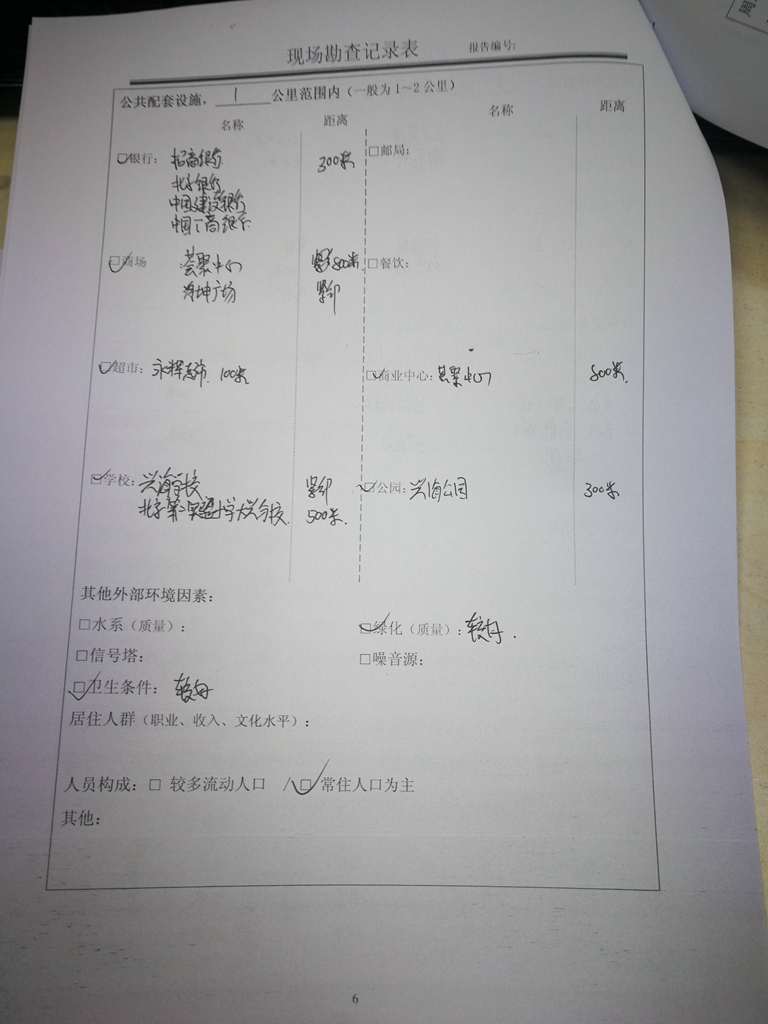 现场勘查记录表 报告编号:
公共配套设施, 1 公里范围内(一般为1~2公里)
名称 距离 名称 距离
☑银行: 招商银行 300米 □邮局:
北京银行
中国建设银行
中国工商银行
☑商场 荟聚中心 800米 □餐饮:
广场 紧邻
☑超市: 永辉超市 100米 ☑商业中心: 荟聚中心 800米
☑学校: 兴海学校 紧邻 ☑公园: 兴海公园 300米
北京第二实验小学大兴分校 500米
其他外部环境因素:
□水系(质量): ☑绿化(质量): 较好.
□信号塔: □噪音源:
☑卫生条件: 较好
居住人群(职业、收入、文化水平):
人员构成: □ 较多流动人口 / ☑ 常住人口为主
其他:
6